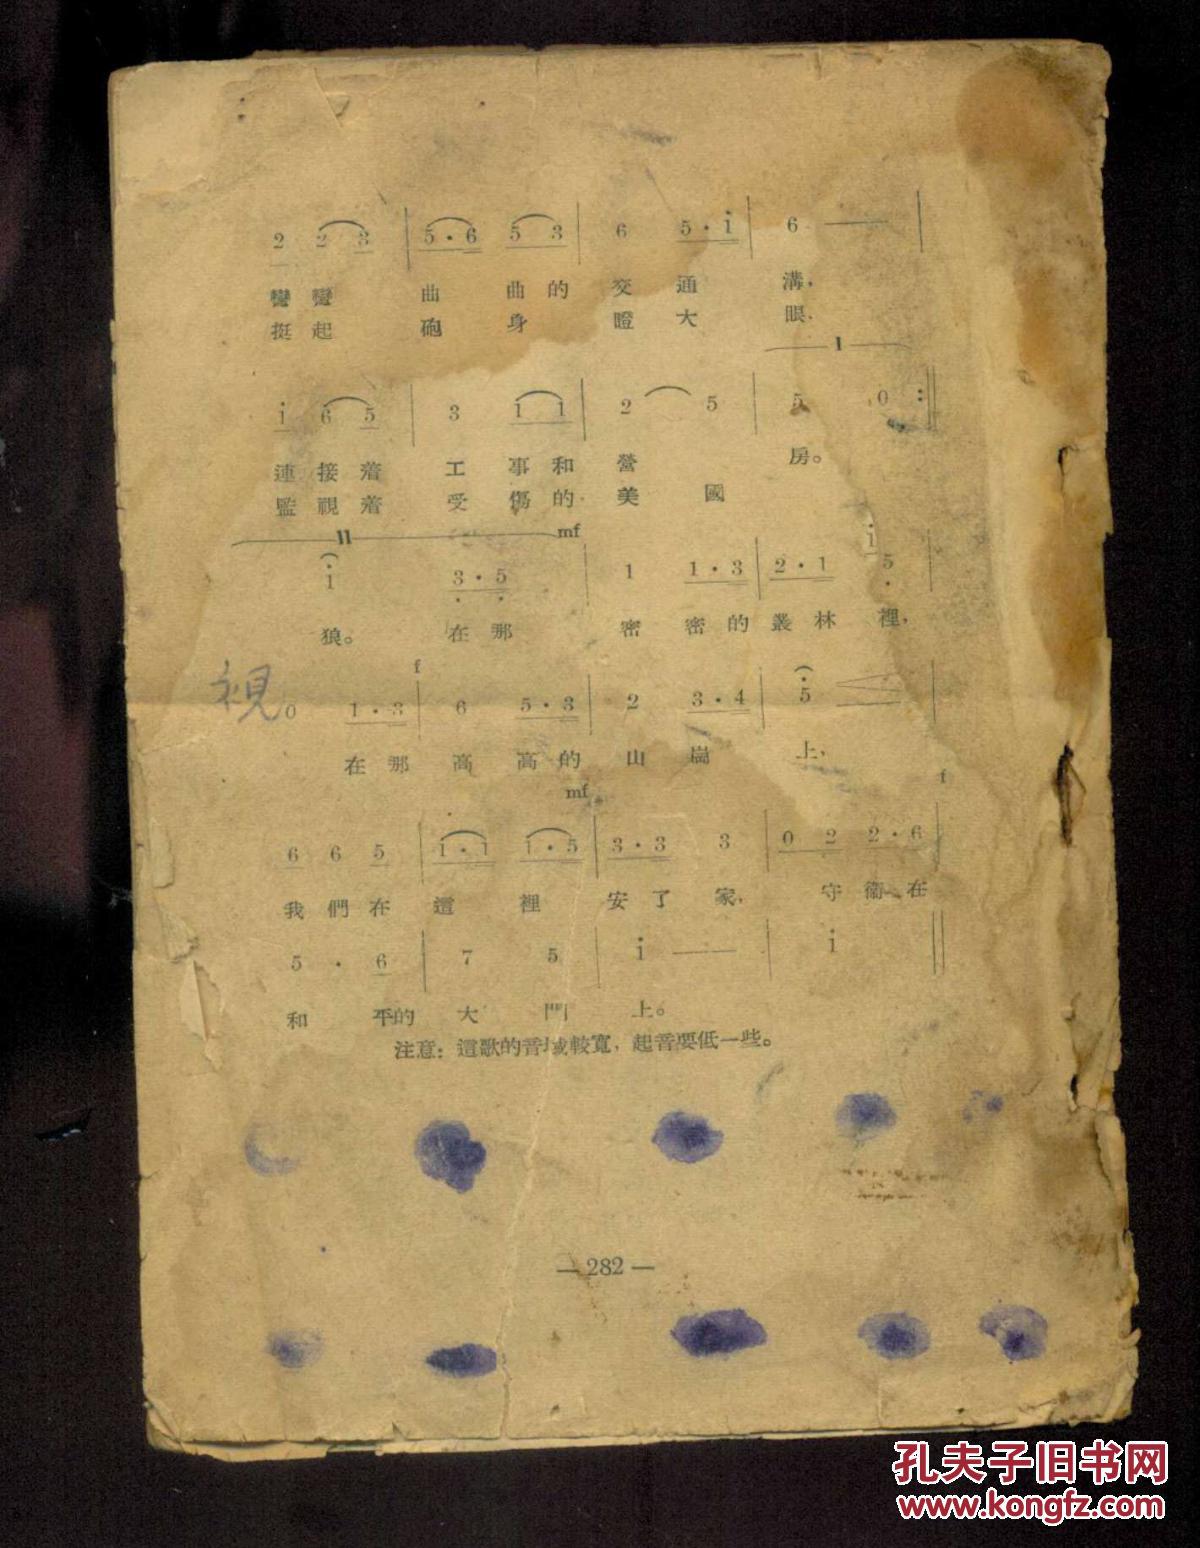 2 2 3 | 5·6 5 3 | 6 5·i | 6 — |
彎彎 曲 曲的 交 通 溝,
挺起 砲 身 瞪 大 眼,
1
i 6 5 | 3 1 1 | 2 5 | 5 0 :‖
連接着 工 事和 營 房。
監視着 受 傷的 美 國
II mf
i 3·5 | 1 1·3 | 2·1 5 |
狼。 在那 密 密的 叢林 裡,
f
視
0 1·3 | 6 5·3 | 2 3·4 | 5 |
在那 高 高的 山 崗 上,
mf f
6 6 5 | 1·1 1·5 | 3·3 3 | 0 2 2·6 |
我們在 這 裡 安了 家, 守衛在
5 · 6 | 7 5 | i — | i ‖
和 平的 大 門 上。
注意:這歌的音域較寬,起音要低一些。
— 282 —
孔夫子旧书网
www.kongfz.com